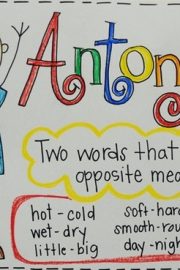 Anton
Two words that
opposite mea
hot - cold soft - hard
wet - dry smooth - rou
little - big day - nigh